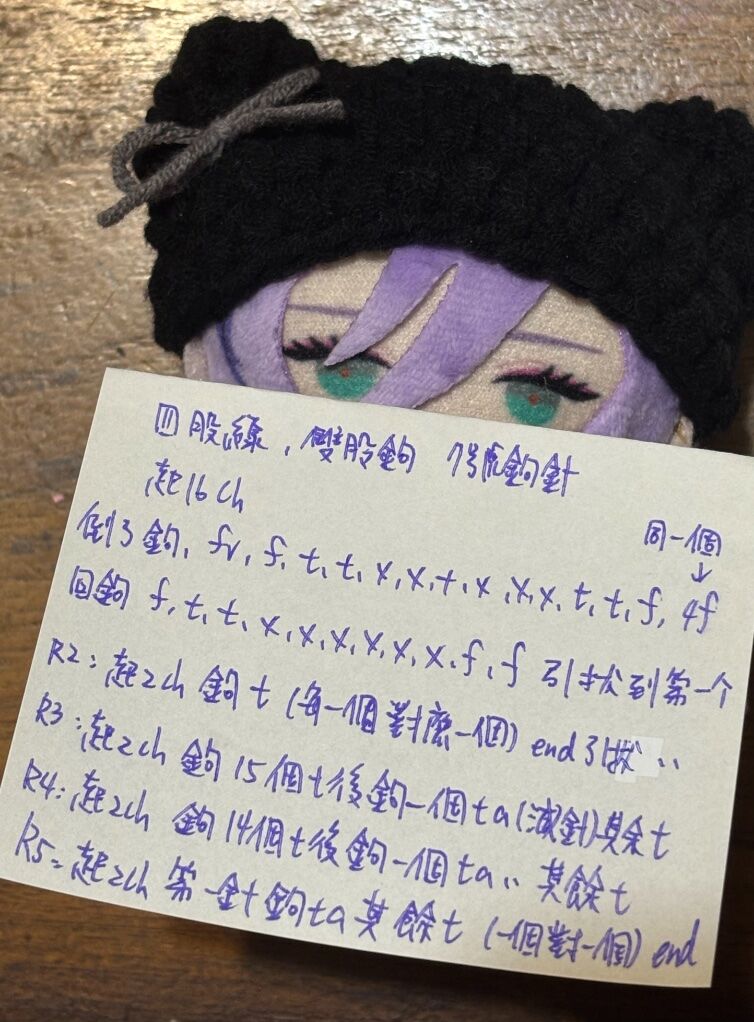 四股線，雙股鉤 7号鉤針
起16ch
同一個
↓
倒3鉤、fv、f、t、t、x、x、t、x、x、x、t、t、f、4f
回鉤 f、t、t、x、x、x、x、x、x、f、f 引拔到第一个
R2：起2ch 鉤t（每一個對應一個）end引拔..
R3：起2ch 鉤15個t後鉤一個ta（減針）其余t
R4：起2ch 鉤14個t後鉤一個ta.. 其餘t
R5：起2ch 第一針鉤ta其餘t（一個對一個）end